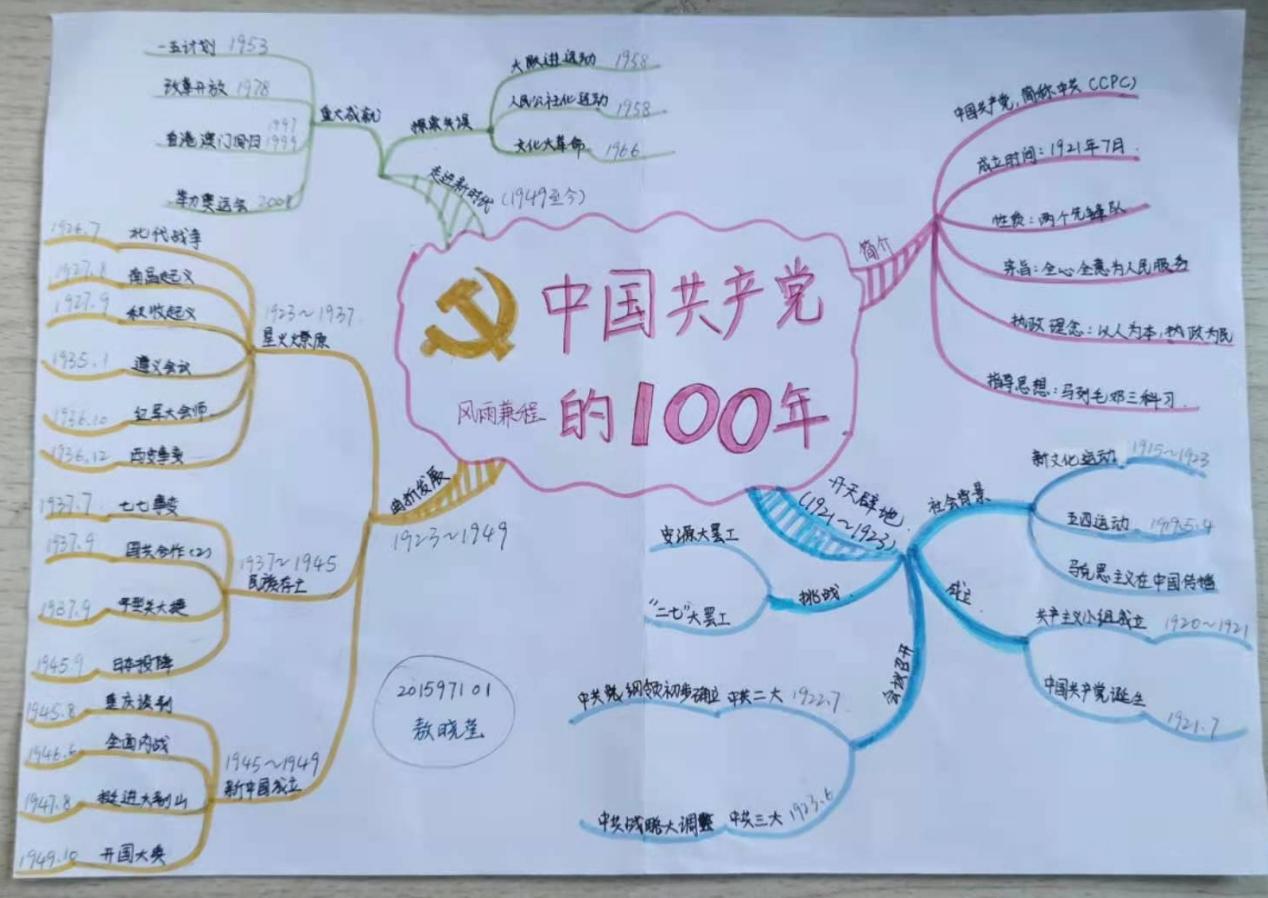 中国共产党
风雨兼程 的100年
简介
中国共产党,简称中共(CCPC)
成立时间:1921年7月.
性质:两个先锋队
宗旨:全心全意为人民服务
执政理念:以人为本,执政为民
指导思想:马列毛邓三科习.
开天辟地.
(1921~1923)
社会背景
新文化运动 1915~1923
五四运动 1919.5.4
马克思主义在中国传播
成立
共产主义小组成立 1920~1921
中国共产党诞生 1921.7
会议召开
中共党纲领初步确立 中共二大 1922.7
中共战略大调整 中共三大 1923.6
挑战
安源大罢工
"二七"大罢工
曲折发展
1923~1949
1923~1937
星火燎原
1926.7 北伐战争
1927.8 南昌起义
1927.9 秋收起义
1935.1 遵义会议
1936.10 红军大会师
1936.12 西安事变
1937~1945
民族存亡
1937.7 七七事变
1937.9 国共合作(2)
1937.9 平型关大捷
1945.9 日本投降
1945~1949
新中国成立
1945.8 重庆谈判
1946.6 全面内战
1947.8 挺进大别山
1949.10 开国大典
走进新时代 (1949至今)
重大成就
一五计划 1953
改革开放 1978
香港澳门回归 1997 1999
举办奥运会 2008
探索失误
大跃进运动 1958
人民公社化运动 1958
文化大革命 1966
2015971 01
敖晓莹